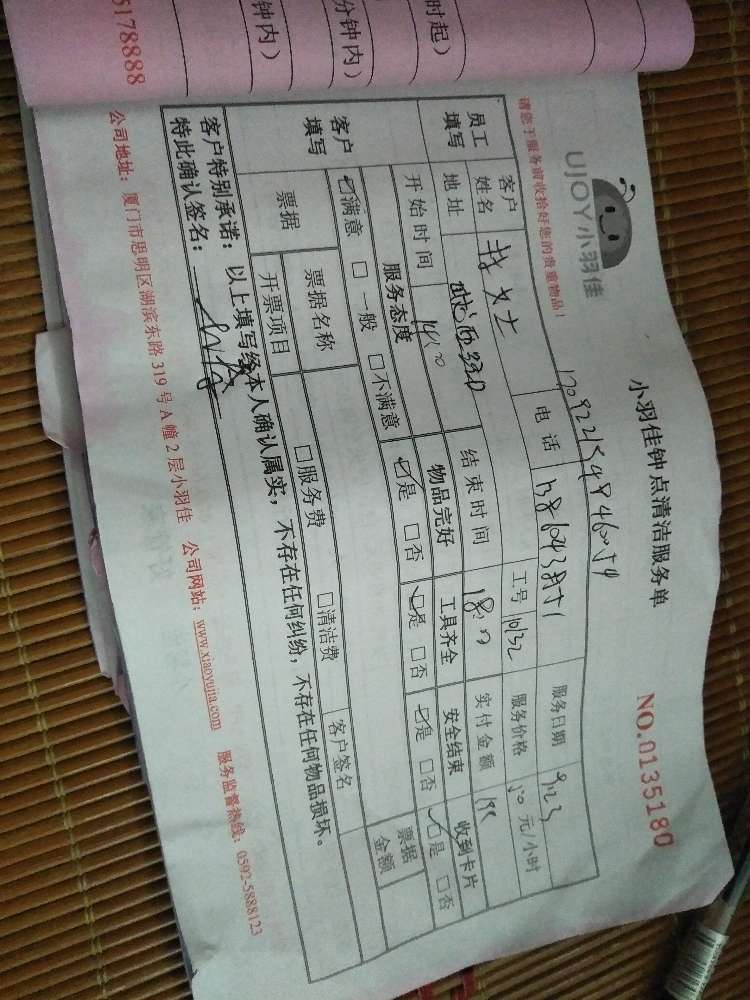 时起）
分钟内）
钟内）
5178888
UJOY小羽佳
小羽佳钟点清洁服务单
NO.0135180
请您于服务前收拾好您的贵重物品！
员工填写
客户姓名
女士
电话
服务日期
9.23
地址
工号
1032
服务价格
50 元/小时
开始时间
14:00
结束时间
18:00
实付金额
客户填写
服务态度
物品完好
工具齐全
安全结束
收到卡片
☑满意 □一般 □不满意
☑是 □否
☑是 □否
☑是 □否
☑是 □否
票据
票据名称
□服务费
□清洁费
客户签名
票据金额
开票项目
客户特别承诺：以上填写经本人确认属实，不存在任何纠纷，不存在任何物品损坏。
特此确认签名：
公司地址：厦门市思明区湖滨东路 319 号 A 幢 2 层小羽佳 公司网站：www.xiaoyujia.com 服务监督热线：0592-5888123